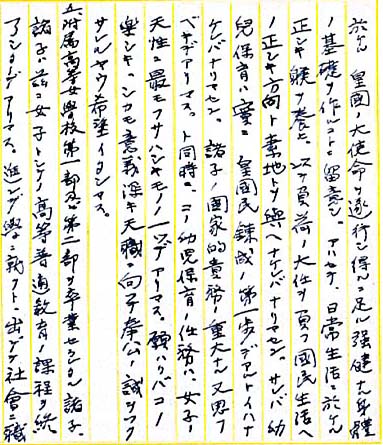 於ケル皇国ノ大使命ヲ遂行シ得ルニ足ル強健ナル身体
ノ基礎ヲ作ルコトニ留意シ、アハセテ、日常生活ニ於ケル
正シキ躾ヲ養ヒ、以テ負荷ノ大任ヲ負フ国民生活ヘ
ノ正シキ方向ト素地トヲ與ヘナケレバナリマセン。サレバ幼
児保育ハ實ニ皇国民錬成ノ第一歩デアルトイハナ
ケレバナリマセン。諸子ノ国家的責務ノ重大ナルヲ思フ
ベキデアリマス。ト同時ニ、コノ幼児保育ノ任務ハ、女子ノ
天性ニ最モフサハシキモノノ一ツデアリマス。願ハクバコノ
楽シキ、シカモ意義深キ天職ニ向ツテ奉公ノ誠ヲツク
サレルヤウ希望イタシマス。
附属高等女學校第一部及ビ第二部ヲ卒業セラレタル諸子、
諸子ハ茲ニ女子トシテノ高等普通教育ノ課程ヲ終
フシタノデアリマス。進ンデ學ニ就クト、出デテ社会ニ職